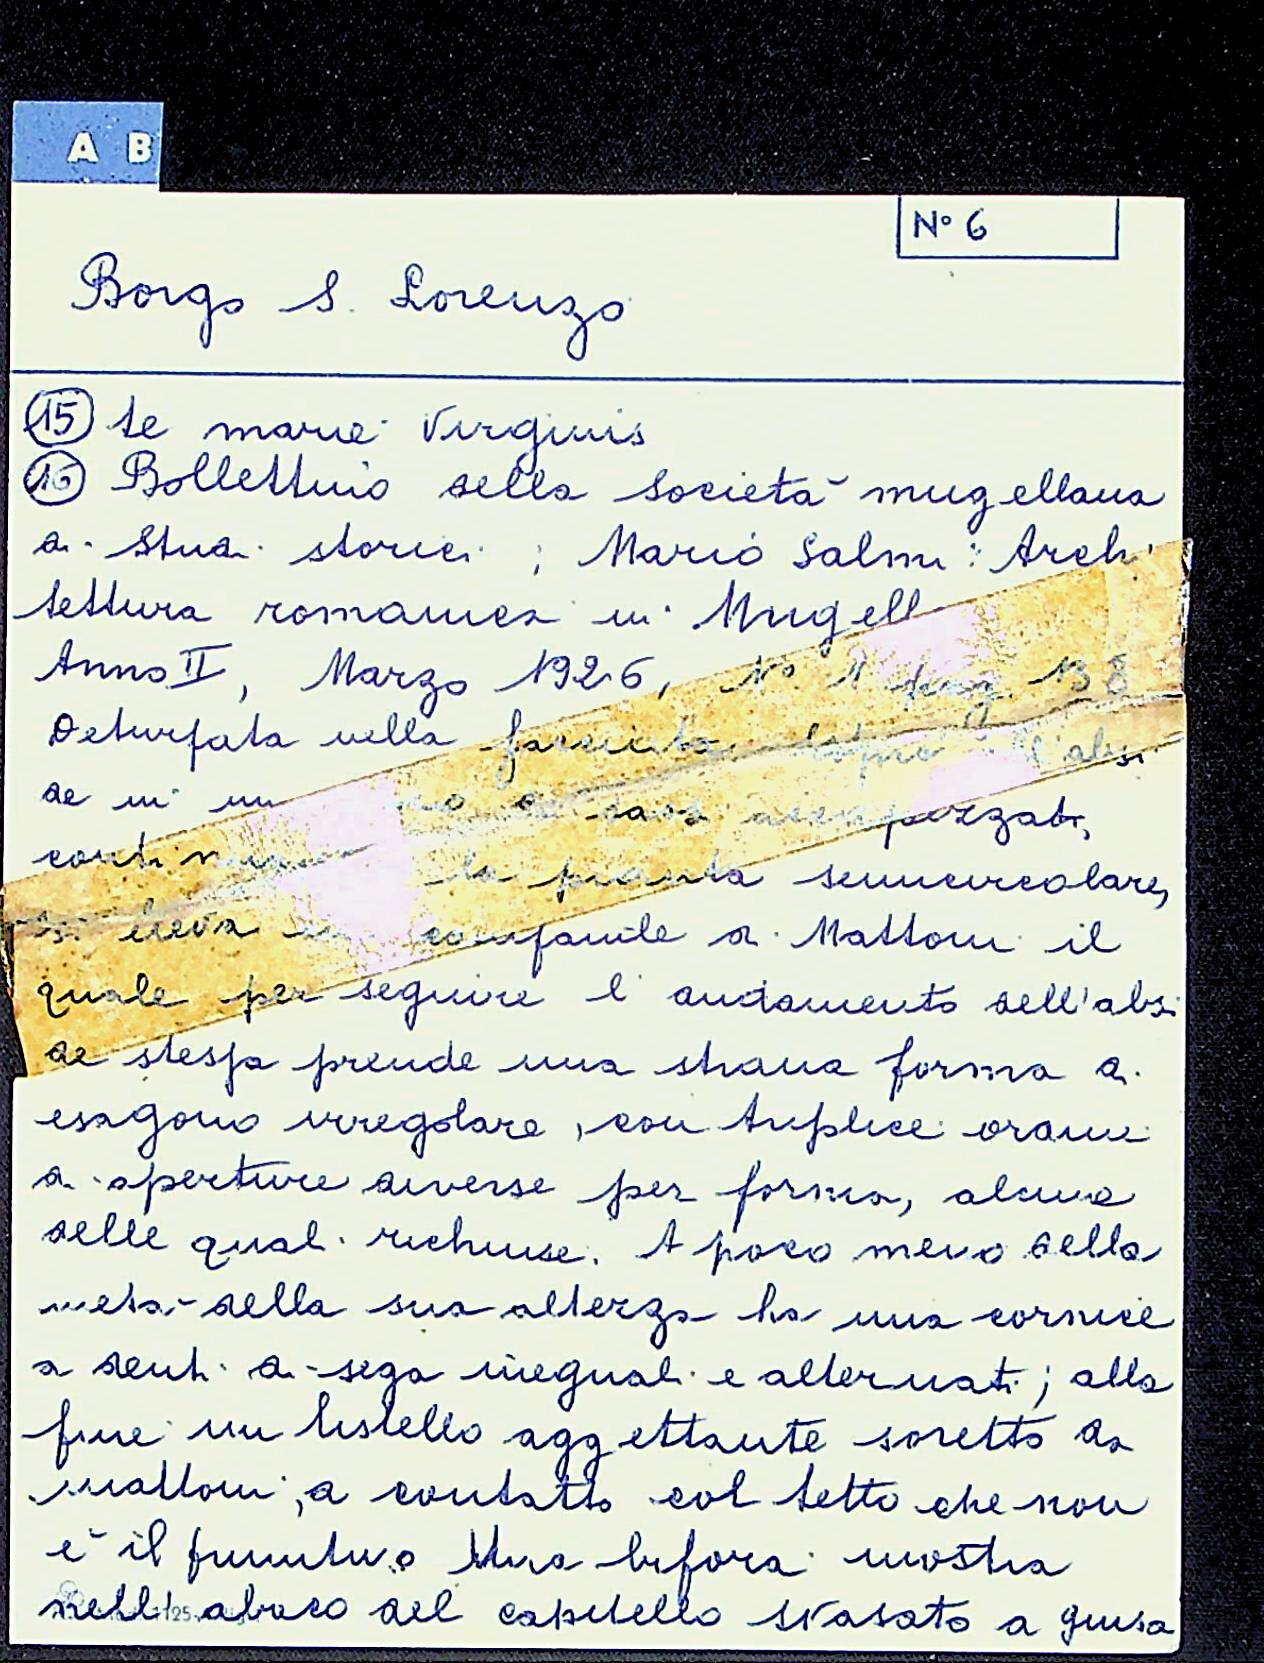 A B
N° 6
Borgo S. Lorenzo
15 te marie Virginis
16 Bollettino della Società mugellana
di Studi storici ; Mario Salmi : Archi
tettura romanica in Mugell
Anno II, Marzo 1926, N° 1 pag. 138
Deturpata nella facciata, sopra l'absi
de in un di sassi
la pianta semicircolare,
si leva un campanile di Mattoni il
quale per seguire l'andamento dell'absi
de stessa prende una strana forma di
esagono irregolare, con triplice ordine
di aperture diverse per forma, alcune
delle quali richiuse. A poco meno della
metà della sua altezza ha una cornice
a denti di sega ineguali e alternati ; alla
fine un listello aggettante soretto da
mattoni, a contatto col tetto che non
è il primitivo Una bifora mostra
nell'abaco del capitello svasato a guisa